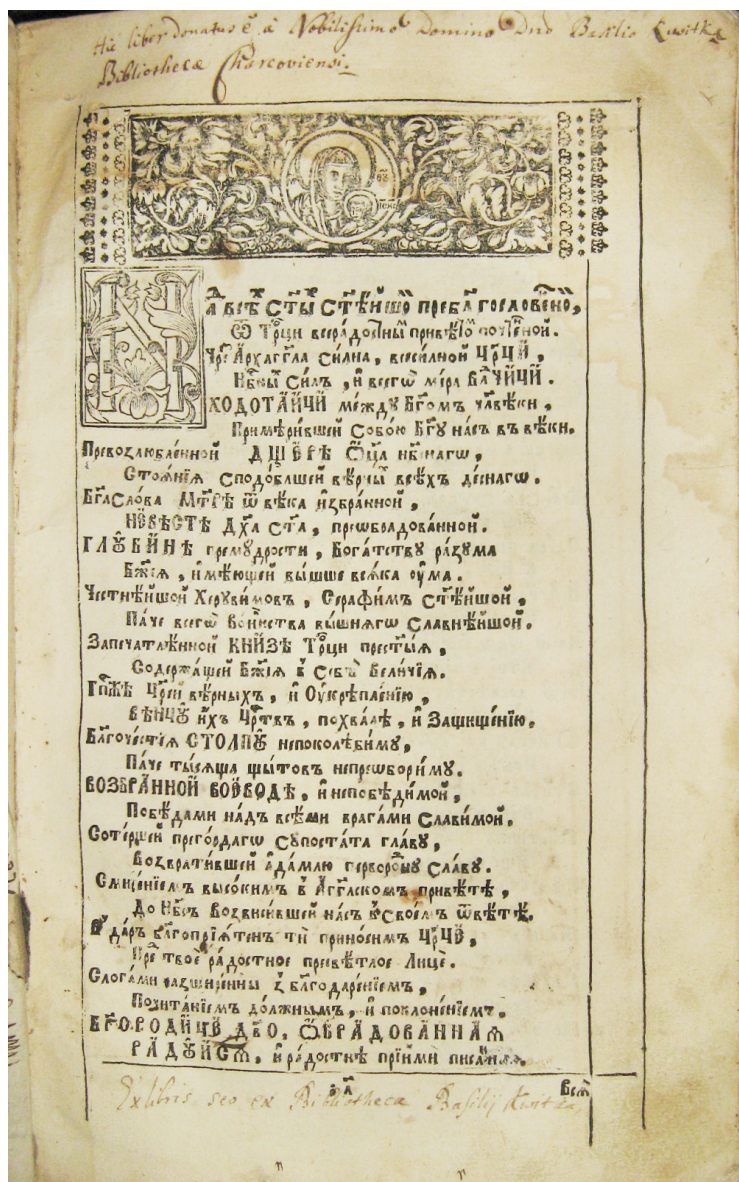 Hic liber donatus ē a Nobilissimo Domino Dno Basilio Kwitka
Bibliothecæ Charcoviensi
ѿ Трⷪ҇ци всерадостны привѣ
Архаггла силна, всесилной Цр҃ЦѢЙ,
Нбⷭ҇ныⷯ Силъ, и҆ всегѡ мі́ра ВЛⷣЧИЦѢЙ.
ХОДОТАЙЦѢЙ ме́жду Бг҃омъ члв҃ѣки,
Примѣри́вшей Собо́ю Бг҃у на́съ въ вѣ́ки.
Превозлю́бленной ДЩЕРѢ Ѻц҃а нб҃снагѡ,
Стоѧ́нїѧ сподо́бшей вѣ́рныⷯ всѣ́хъ десна́гѡ.
Бг҃а Сло́ва МТ҃РѢ ѿ вѣ́ка и҆збра́нной,
НЕВѢСТѢ Дх҃а ст҃а, преѡбрадова́нной.
ГЛꙊБИНѢ премꙋ́дрости, Бога́тствꙋ ра́зꙋма
Бж҃їѧ, и҆мѣ́ющей вы́шше всѧ́ка ᲂу҆ма̀.
Честнѣ́йшой Херꙋви́мовъ, Серафи́мъ ст҃ѣ́йшой,
Па́че всегѡ̀ во́инства вы́шнѧгѡ сла́внѣйшой.
Запечатлѣ́нной КНИЗѢ Трⷪ҇ци прест҃ы́ѧ,
Содержа́щей Бж҃їѧ в Себѣ̀ Вели́чїѧ.
Гпⷭ҇жѣ Цр҃ей вѣ́рныхъ, и҆ Оу҆крѣпле́нїю,
ВѢНЦꙊ и҆́хъ Црⷭ҇твъ, похва́лѣ, и҆ Защище́нїю.
Бл҃гоче́стїѧ СТОЛПꙊ непоколѣби́мꙋ,
Па́че ты́сѧща щы́товъ непреѡбори́мꙋ.
ВОЗБРАННОЙ ВОЕВОДѢ, и҆ непобѣди́мой,
Побѣ́дами на́дъ всѣ́ми врага́ми Слави́мой.
Соте́ршей прего́рдагѡ сꙋпоста́та гла́вꙋ,
Возврати́вшей А҆да́млю перворо́днꙋ сла́вꙋ.
Смире́нїемъ высо́кимъ в А҆́гг҃лскомъ привѣ́тѣ,
До Нб҃съ Возвы́сившей на́съ в Свое́мъ ѿвѣ́тѣ.
В да́ръ бл҃гопрїѧ́тенъ тѝ прино́симъ ЦР҃ЦЕ,
Пре твоѐ ра́достное пресвѣ́тлое Лицѐ.
Слога́ми разшире́нны з бл҃годаре́нїемъ,
Почита́нїемъ до́лжнымъ, и҆ поклоне́нїемъ.
БГ҃ОРОДИЦЕ ДВ҃О, ѠБРАДОВАННАѦ
РАДꙊЙСѦ, и҆ ра́достнѣ прїимѝ писа̑ннаѧ.
Всѧ
Ex libris seo ex Bibliotheca Basilij Kwitka